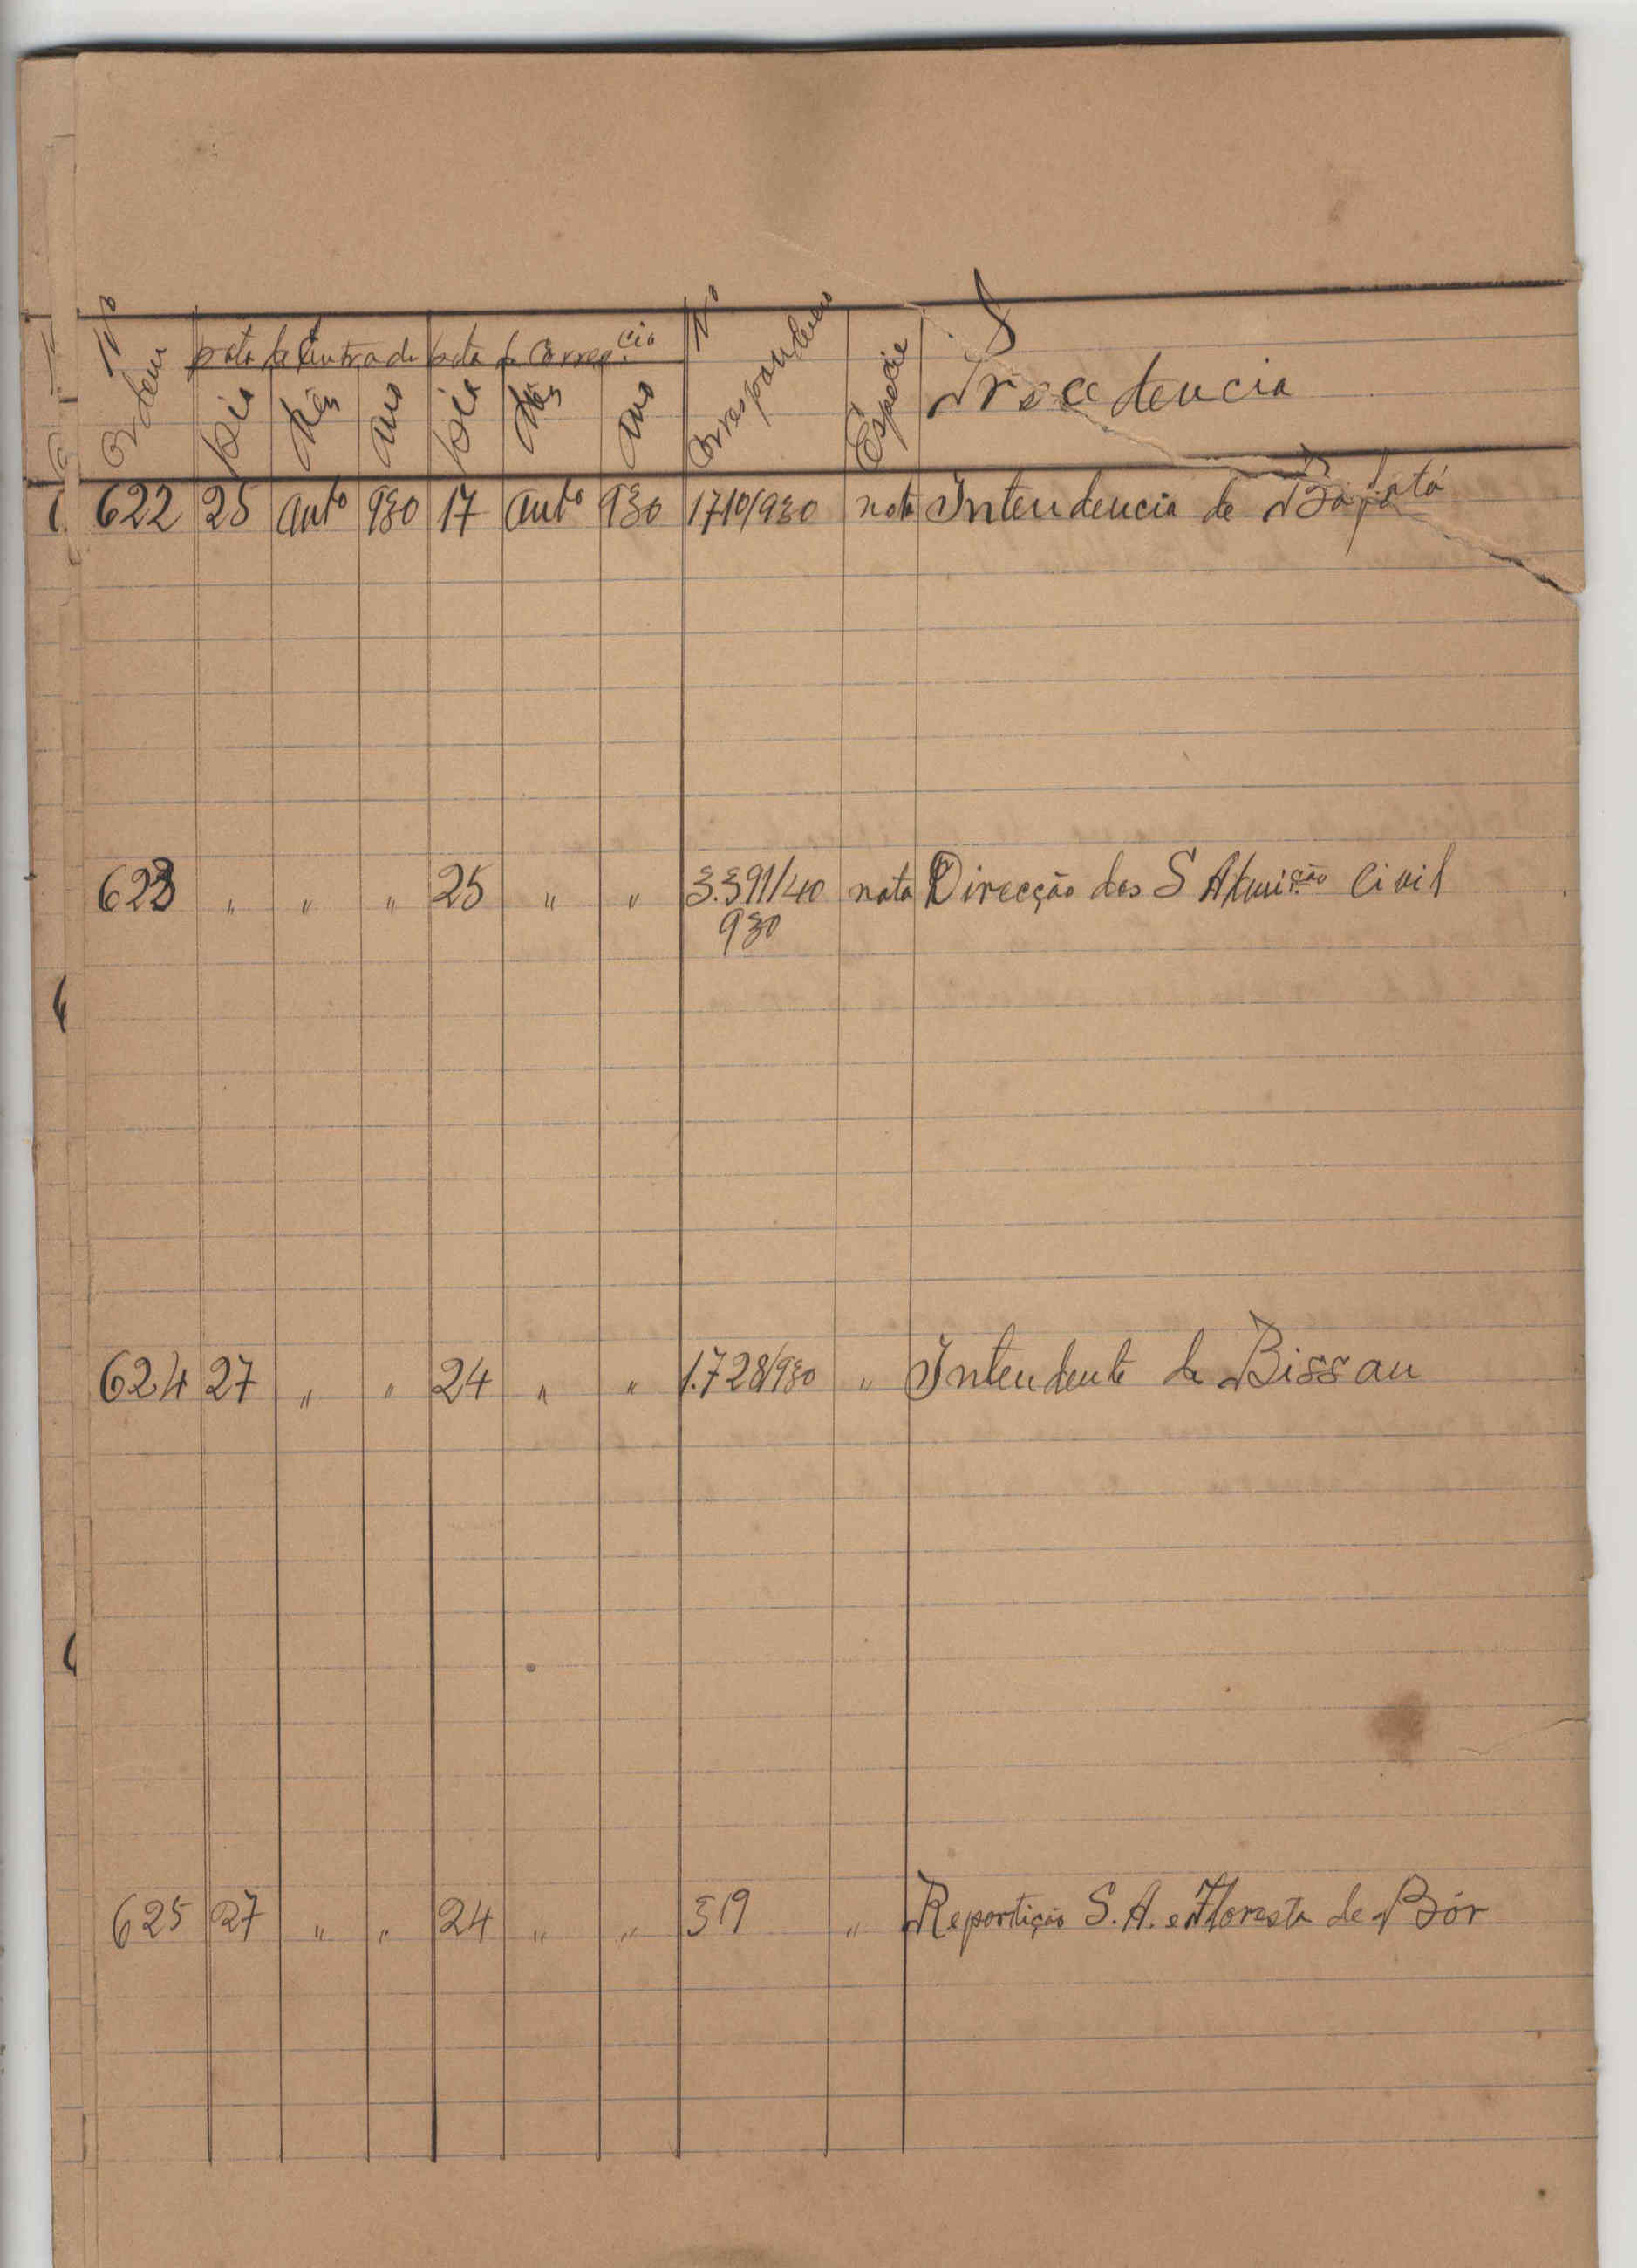 Nº Ordem Data de Entrada Data de Corresp.cia Nº Correspondencia Especie Procedencia
Dia Mês Ano Dia Mês Ano
622 25 Outº 930 17 Outº 930 1710/930 nota Intendencia de Bafatá
623 " " " 25 " " 3.391/40 nota Direcção dos S Admi.ção Civil
930
624 27 " " 24 " " 1.728/930 " Intendente de Bissau
625 27 " " 24 " " 519 " Repartição S. A. e Floresta de Bór